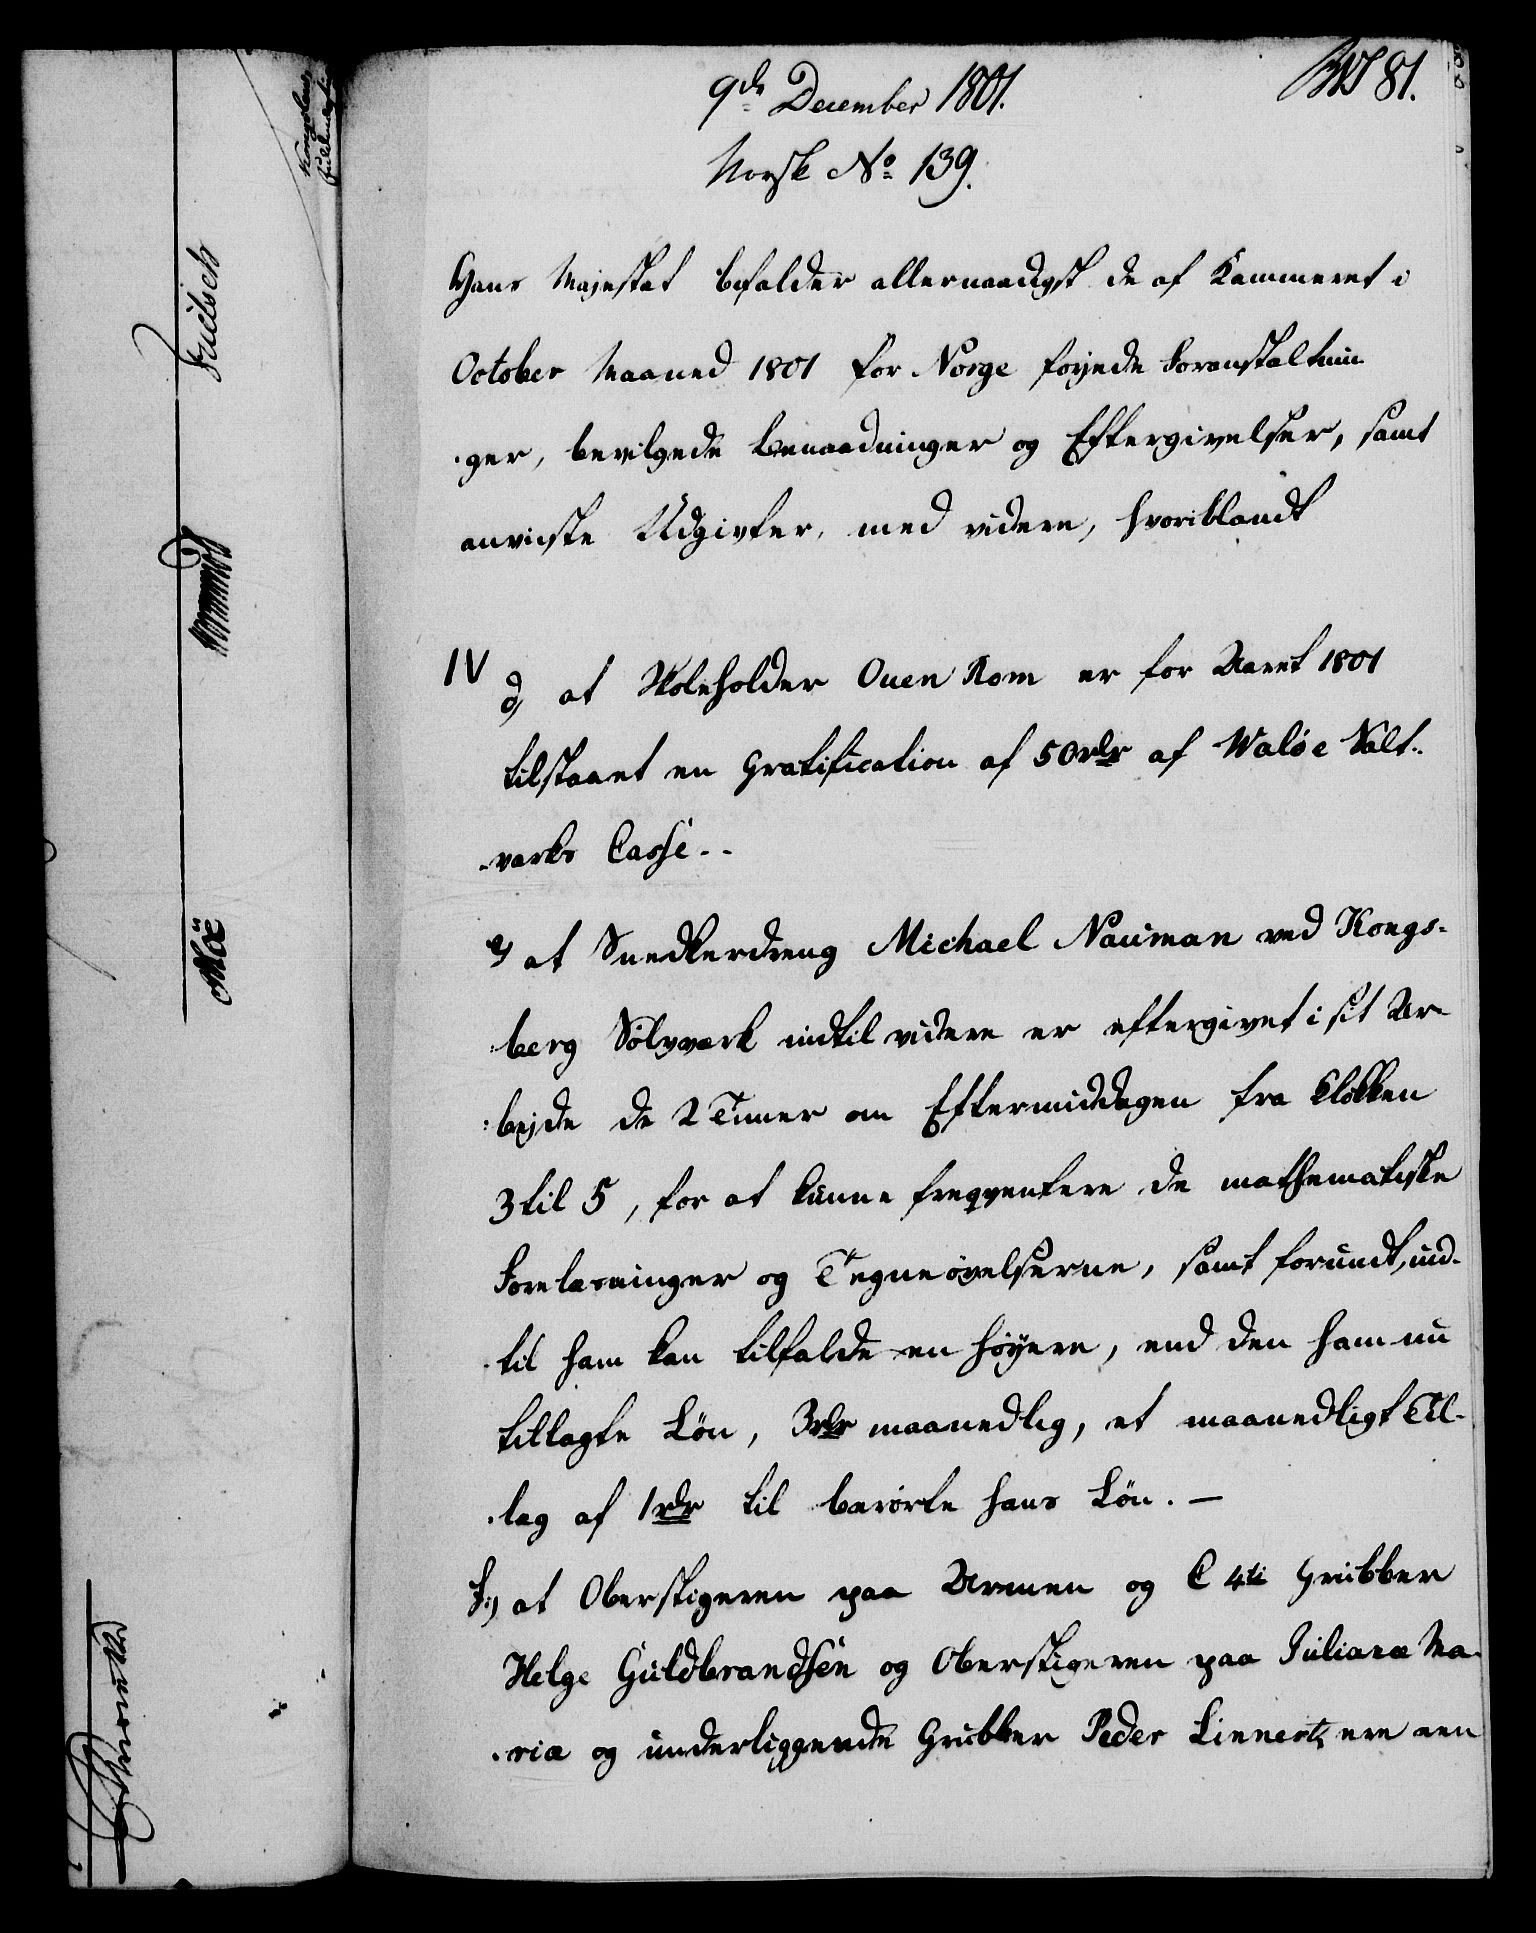 9de December 1801.
81.
Norsk No 139.
Hans Majestæt befalder allernaadigst de af Kammeret i
October Maaned 1801 for Norge føyede Foranstaltnin
-ger, bevilgede Benaadninger og Eftergivelser, samt
anviiste Udgivter, med videre, hvoriblandt
IV
d, at Skoleholder Ouen Rom er for Aaret 1801
tilstaaet en Gratification af 50 rdr af Waløe Salt-
-værks Casse.-
e, at Snedkerdreng Michael Nauman ved Kongs-
-berg Sølvværk indtil videre er eftergivet i sit Ar-
-bejde de 2 Timer om Eftermiddagen fra Klokken
3 til 5, for at kunne freqventere de mathematiske
Forelæsninger og Tegneøvelserne, samt forundt, ind-
-til ham kan tilfalde en høyere, end den ham nu
tillagte Løn, 3 rdr maanedlig, et maanedligt Til-
-læg af 1 rdr til berørte hans Løn. -
f, at Oberstigeren paa Armen og C 4ti Grubber
Helge Guldbrandsen og Oberstigeren paa Juliane Ma-
-ria og underliggende Grubber Peder Linnert, ere een
Fritsch